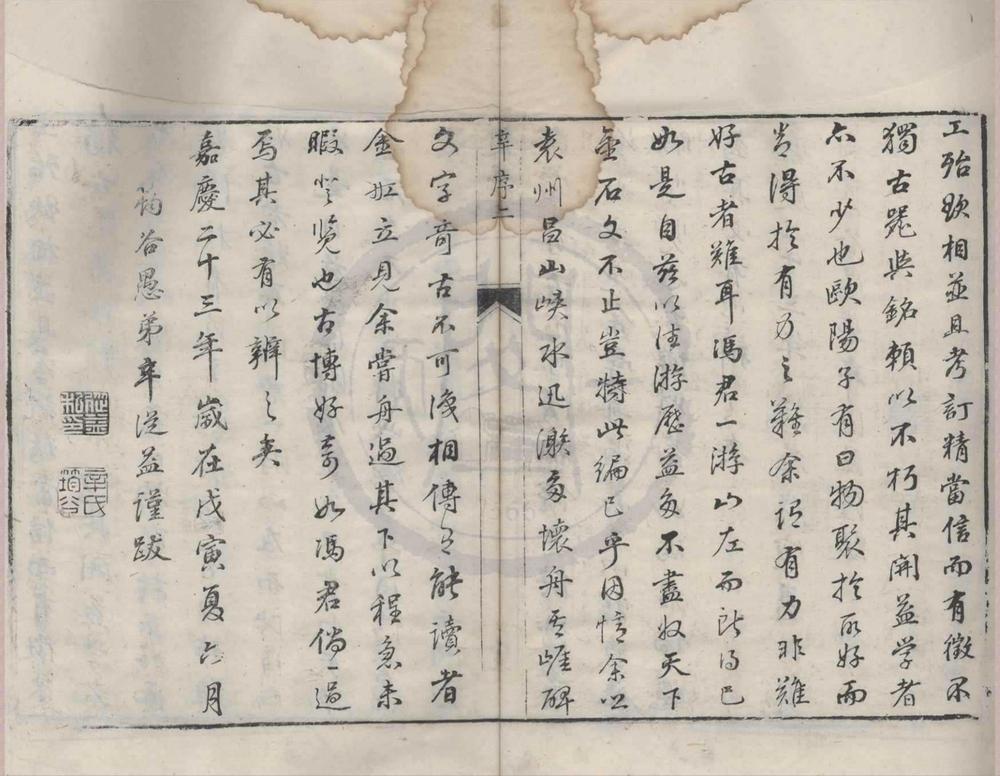 工殆欲相並且考訂精當信而有徵不
獨古器與銘賴以不朽其開益學者
亦不少也歐陽子有曰物聚於所好而
當得於有力之難余謂有力非難
好古者難耳馮君一游山左而所得已
如是自茲以往游歷益多不盡收天下
金石文不止豈特此編已乎因憶余
袁州昌山峽水迅激多壞舟其崖碑
辛序二
文字奇古不可復相傳有能讀者
金矼立見余嘗舟過其下以程急未
暇登覽也古博好奇如馮君倘一過
焉其必有以辨之矣
嘉慶二十三年歲在戊寅夏六月
筠谷愚弟辛從益謹跋
辛氏
筠谷